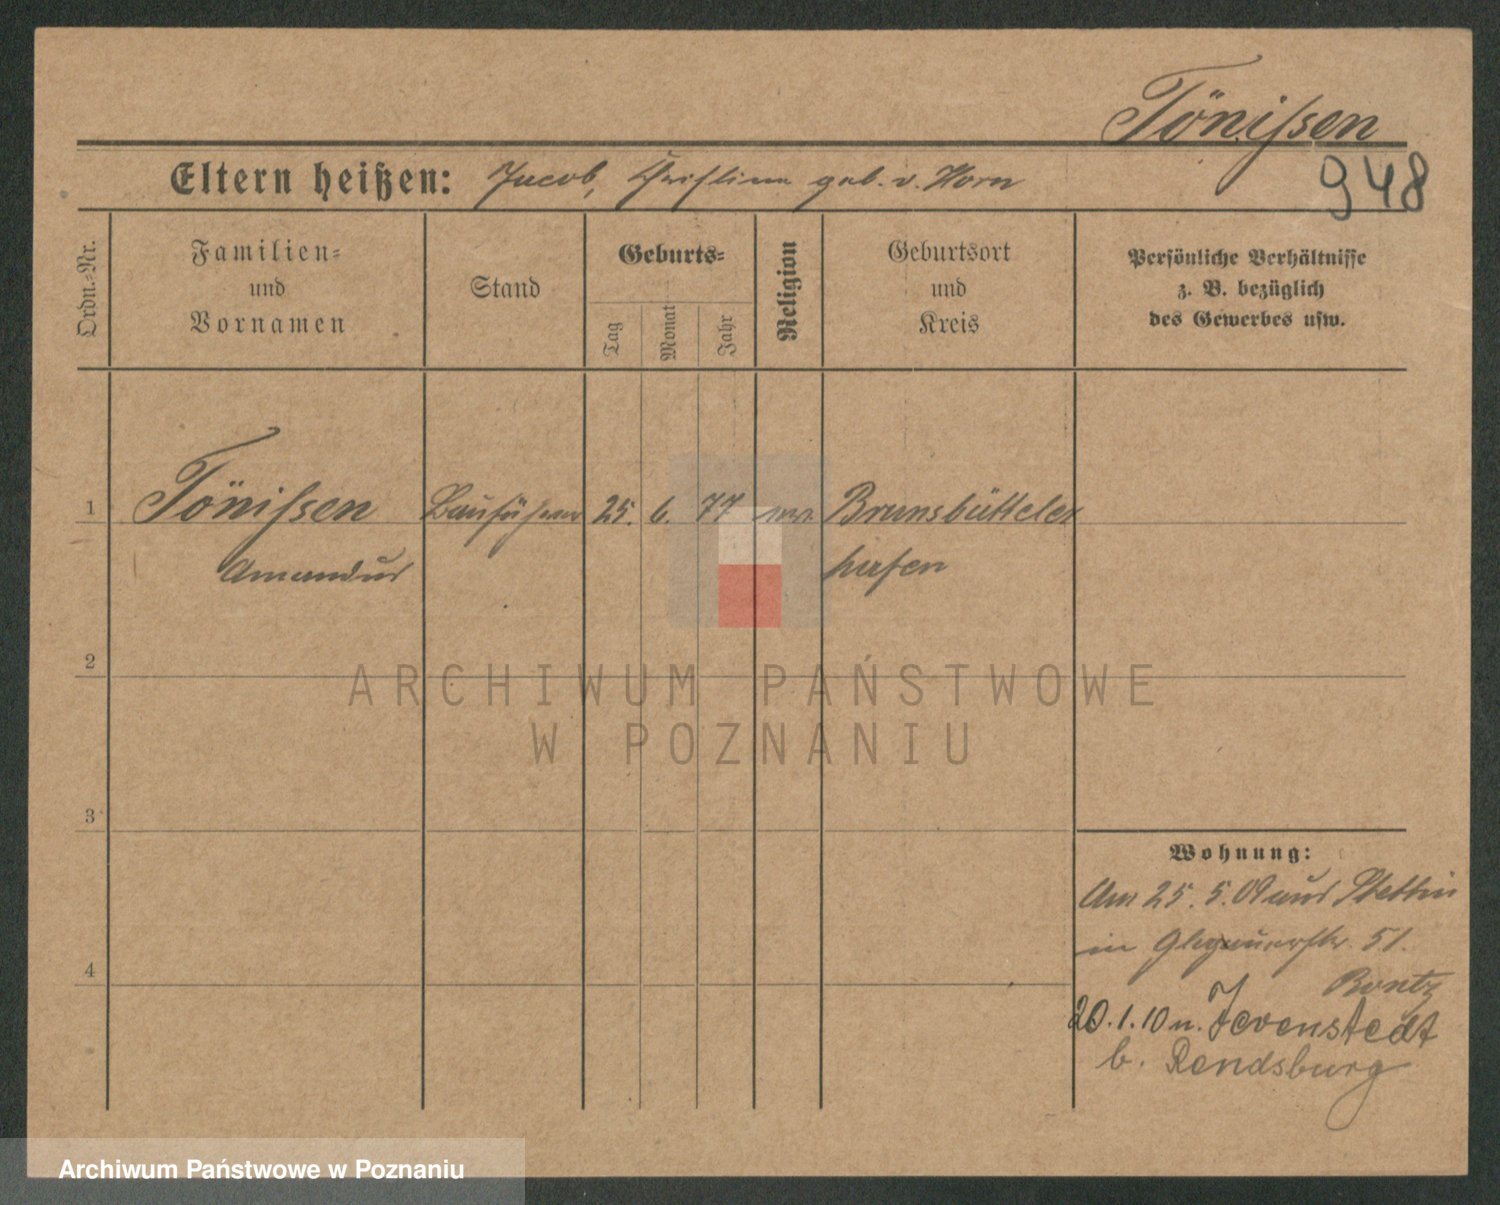 Tönissen
948
Eltern heißen: Jacob, Christine geb. v. Horn
Ordn.-Nr.
Familien- und Vornamen
Stand
Geburts-
Tag
Monat
Jahr
Religion
Geburtsort und Kreis
Persönliche Verhältnisse
z. B. bezüglich
des Gewerbes usw.
1 Tönissen Bauführer 25. 6. 77 Brunsbütteler
Amandus hafen
2
3
4
ARCHIWUM PAŃSTWOWE
W POZNANIU
Wohnung:
Am 25. 5. 09 aus Stettin
in Glogauerstr. 51.
20.1.10 n. Jevenstedt
b. Rendsburg
Archiwum Państwowe w Poznaniu